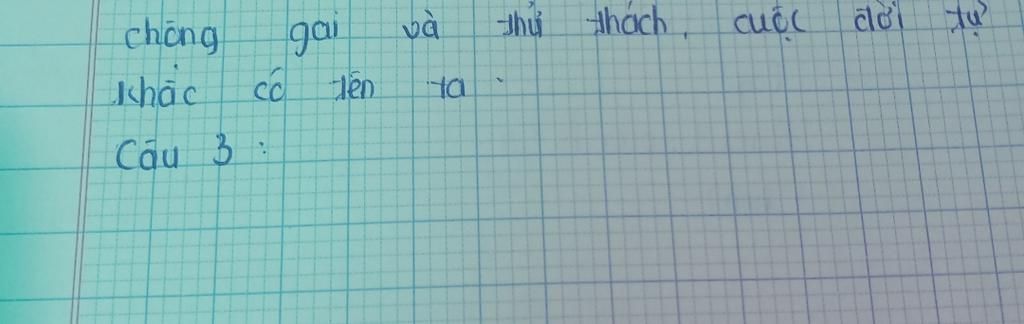 chông gai và thử thách, cuộc đời tự
khắc có tên ta.
Câu 3: